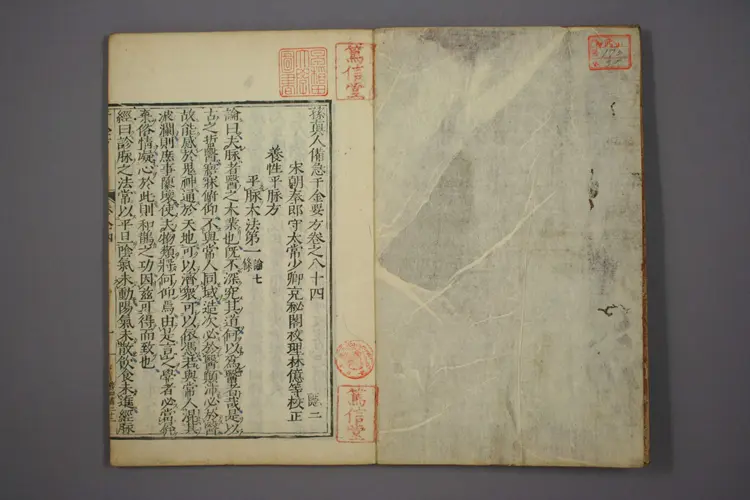 孫真人備急千金要方卷之八十四
宋朝奉郎守太常少卿充秘閣校理林億等校正
養性平脉方
平脉大法第一 論七條
論曰夫脉者醫之大業也旣不深究其道何以爲醫者哉是以
古之哲醫寤寐俯仰不與常人同域造次必於醫顛沛必於醫
故能感於鬼神通於天地可以濟衆可以依憑若與常人混其
波瀾則庶事隳壞使夫物類將何仰焉由是言之學者必當屛
棄俗情凝心於此則和鵲之功因兹可得而致也
經曰診脉之法常以平旦隂氣未動陽氣未散飮食未進經脉
篤信堂
篤信堂
圖書